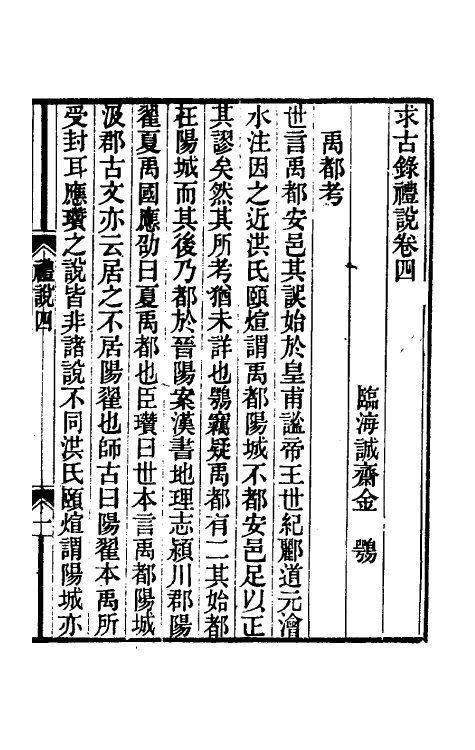 求古錄禮說卷四
臨海誠齋金鶚
禹都考
世言禹都安邑其誤始於皇甫謐帝王世紀酈道元澮
水注因之近洪氏頤煊謂禹都陽城不都安邑足以正
其謬矣然其所考猶未詳也鶚竊疑禹都有二其始都
在陽城而其後乃都於晉陽案漢書地理志潁川郡陽
翟夏禹國應劭曰夏禹都也臣瓚曰世本言禹都陽城
汲郡古文亦云居之不居陽翟也師古曰陽翟本禹所
受封耳應瓚之說皆非諸說不同洪氏頤煊謂陽城亦
禮說四
一